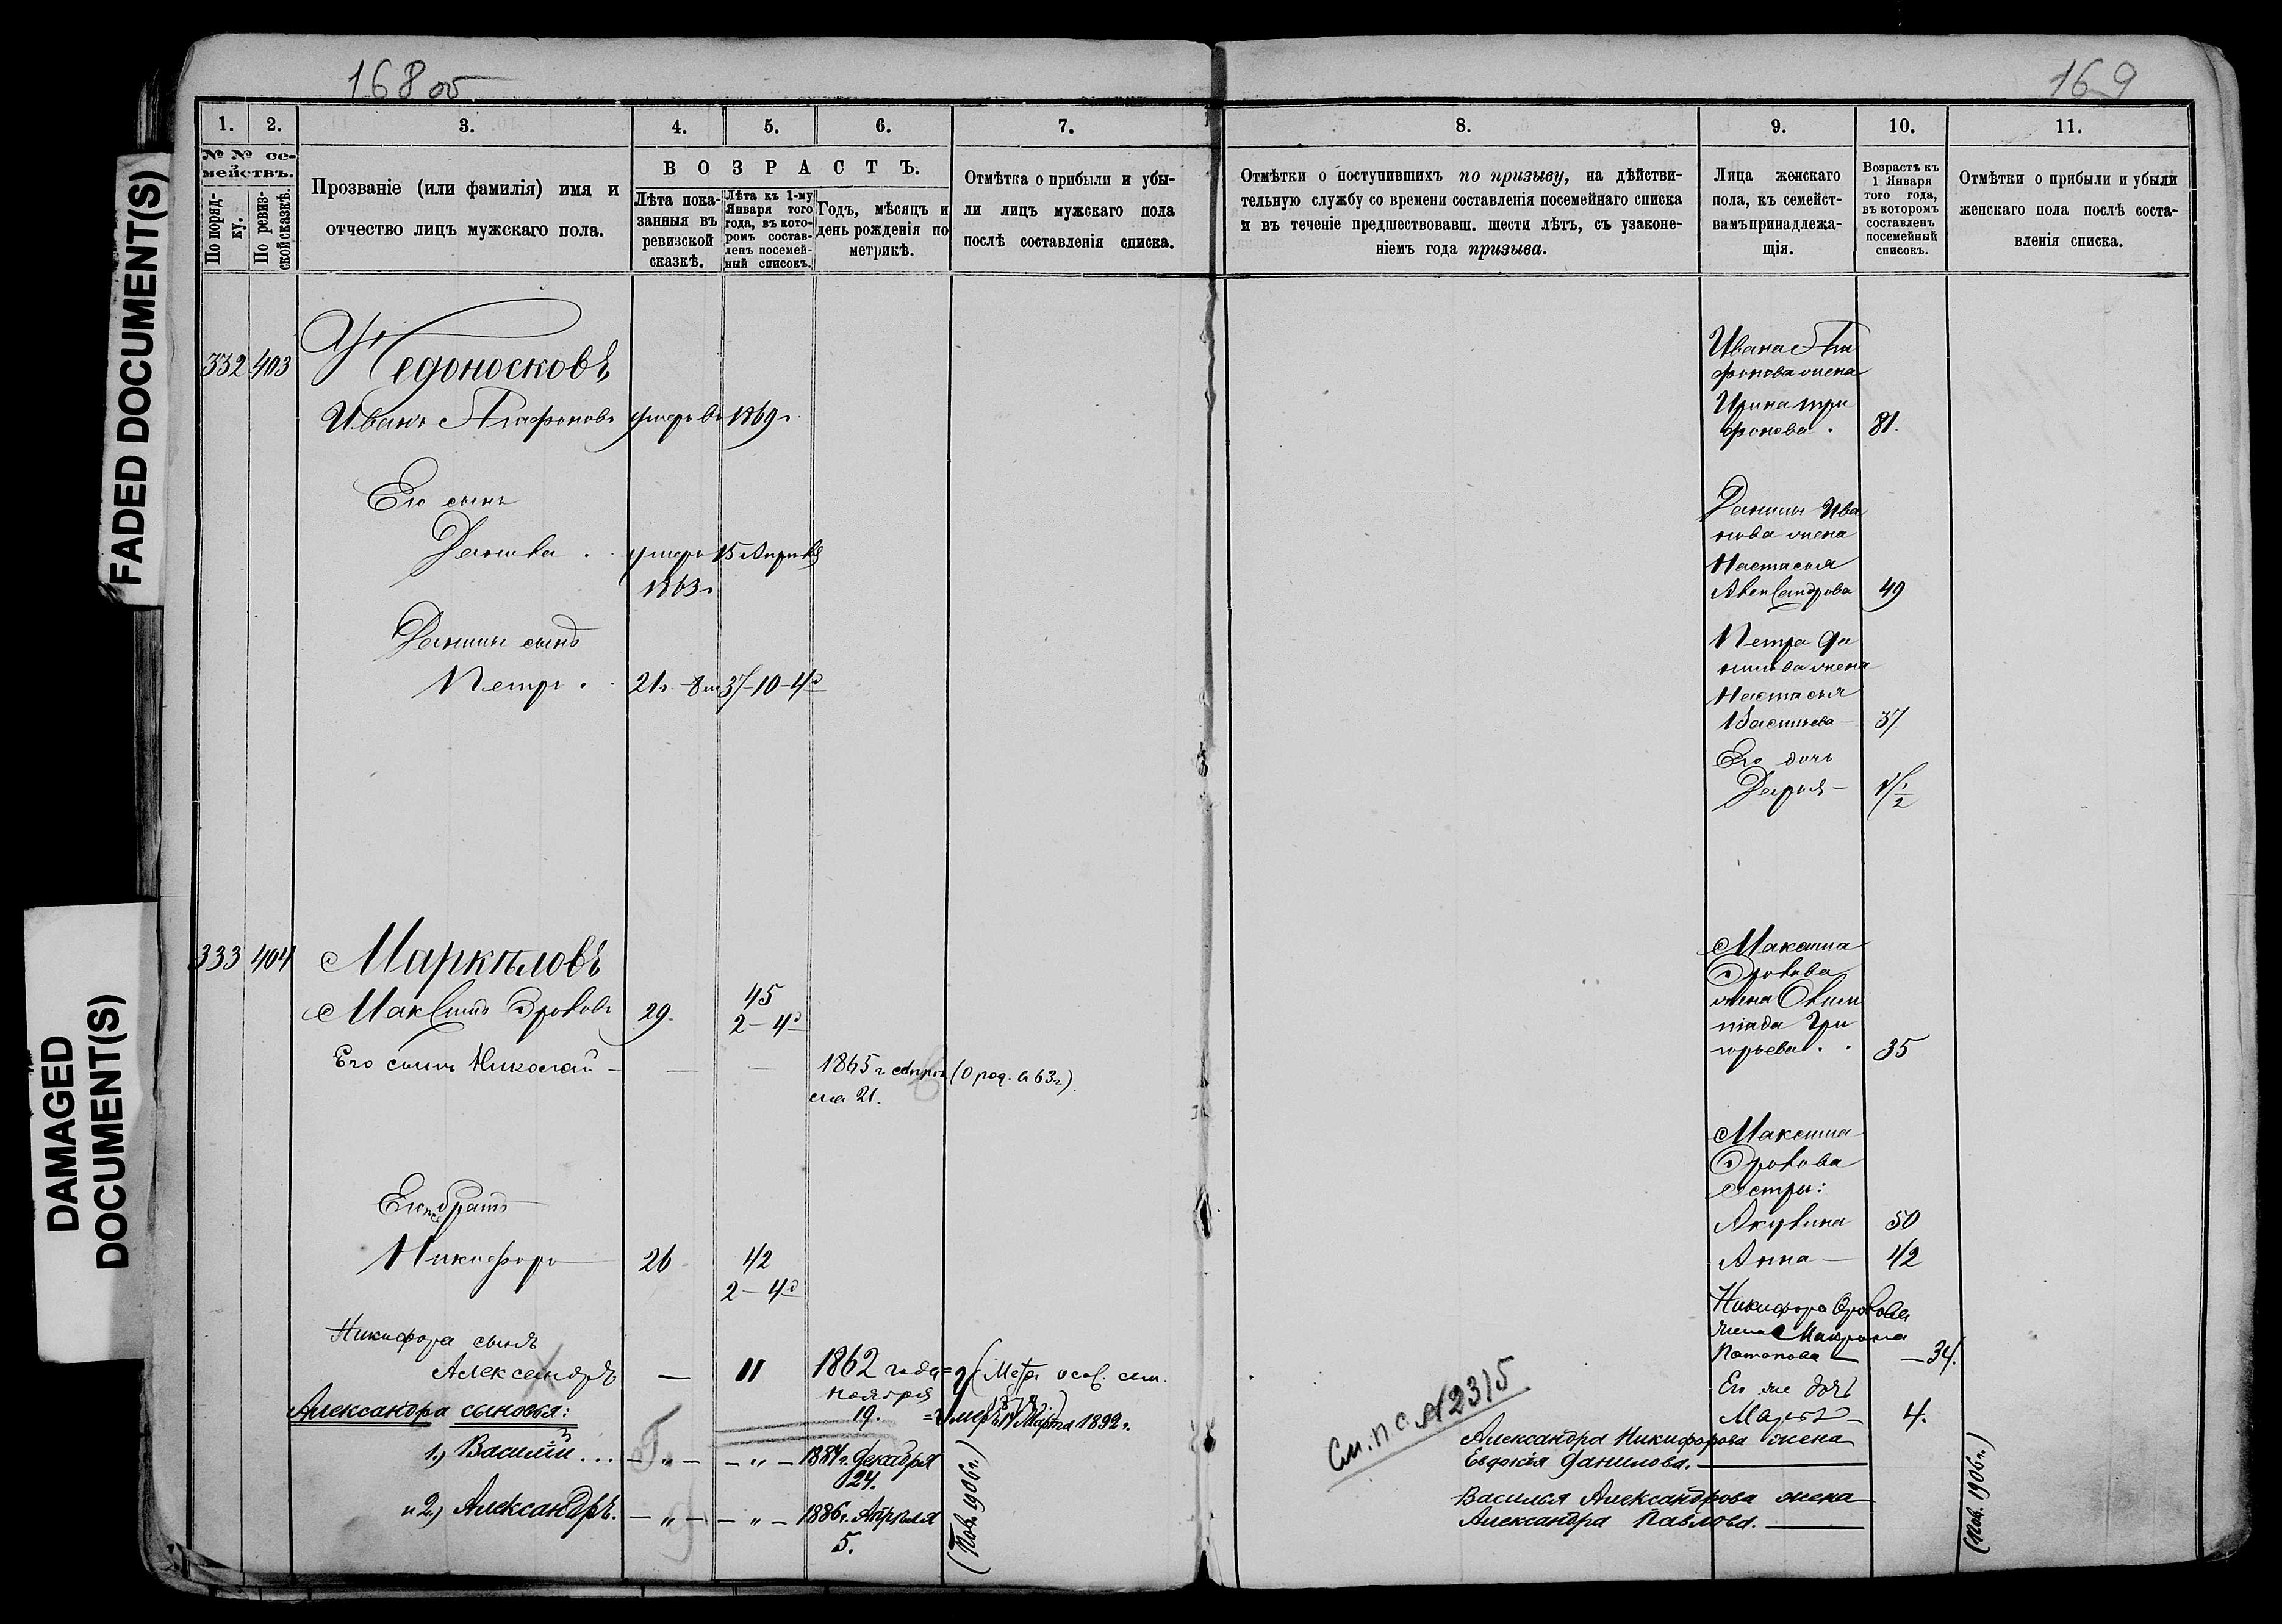 FADED DOCUMENT(S)
DAMAGED
DOCUMENT(S)
168 об
1.
2.
3.
4.
5.
6.
7.
№ № се-
мействъ.
По поряд-
ку.
По ревиз-
ской сказкѣ.
Прозваніе (или фамилія) имя и
отчество лицъ мужскаго пола.
ВОЗРАСТЪ.
Лѣта пока-
занныя въ
ревизской
сказкѣ.
Лѣта къ 1-му
Января того
года, въ кото-
ромъ состав-
ленъ посемей-
ный списокъ.
Годъ, мѣсяцъ и
день рожденія по
метрикѣ.
Отмѣтка о прибыли и убы-
ли лицъ мужскаго пола
послѣ составленія списка.
332 403 Недоносковъ
Иванъ Агафоновъ умеръ въ 1869 г.
Его сынъ
Данила . умеръ 15 Апрѣля
1863 г
Данилы сынъ
Петръ . 21 г. - 8 м 37-10-4 д
333 404 Маркѣловъ
Максимъ Фроловъ 29. 45
2 - 4 д
Его сынъ Николай - — — 1865 г (О род. 63 г.)
21.
Его же братъ
Никифоръ 26 42
2 - 4 д
Никифора сынъ
Александръ — 11 1862 года
ноября
19.
сем.
умеръ Марта 1892 г.
Александра сыновья:
1.) Василій ... — „ — — „ — 1884 г. Декабря
24.
и 2.) Александръ. — „ — — „ — 1886 г. Апрѣля
5.
(Пов. 1906 г.)
169
8.
9.
10.
11.
Отмѣтки о поступившихъ по призыву, на дѣйстви-
тельную службу со времени составленія посемейнаго списка
и въ теченіе предшествовавш. шести лѣтъ, съ узаконе-
ніемъ года призыва.
Лица женскаго
пола, къ семейст-
вамъ принадлежа-
щія.
Возрастъ къ
1 Января
того года,
въ которомъ
составленъ
посемейный
списокъ.
Отмѣтки о прибыли и убыли
женскаго пола послѣ соста-
вленія списка.
Ивана Ага
фонова жена
Ирина Три
фонова . 81.
Данилы Ива
нова жена
Настасья
Александрова 49
Петра Да
нилова жена
Настасья
Васильева — 37
Его дочь
Дарья —
Максима
Фролова
жена Олим
піада Гри
горьева . . 35
Максима
Фролова
сестры:
Акулина 50
Анна — 42
Никифора Фролова
жена
Потапова — — 34.
Его же дочь
Марья — 4.
См. п. с. № 2315
Александра Никифорова жена
Евдокія Данилова. —
Василья Александрова жена
Александра Павлова. —
(Пов. 1906 г.)